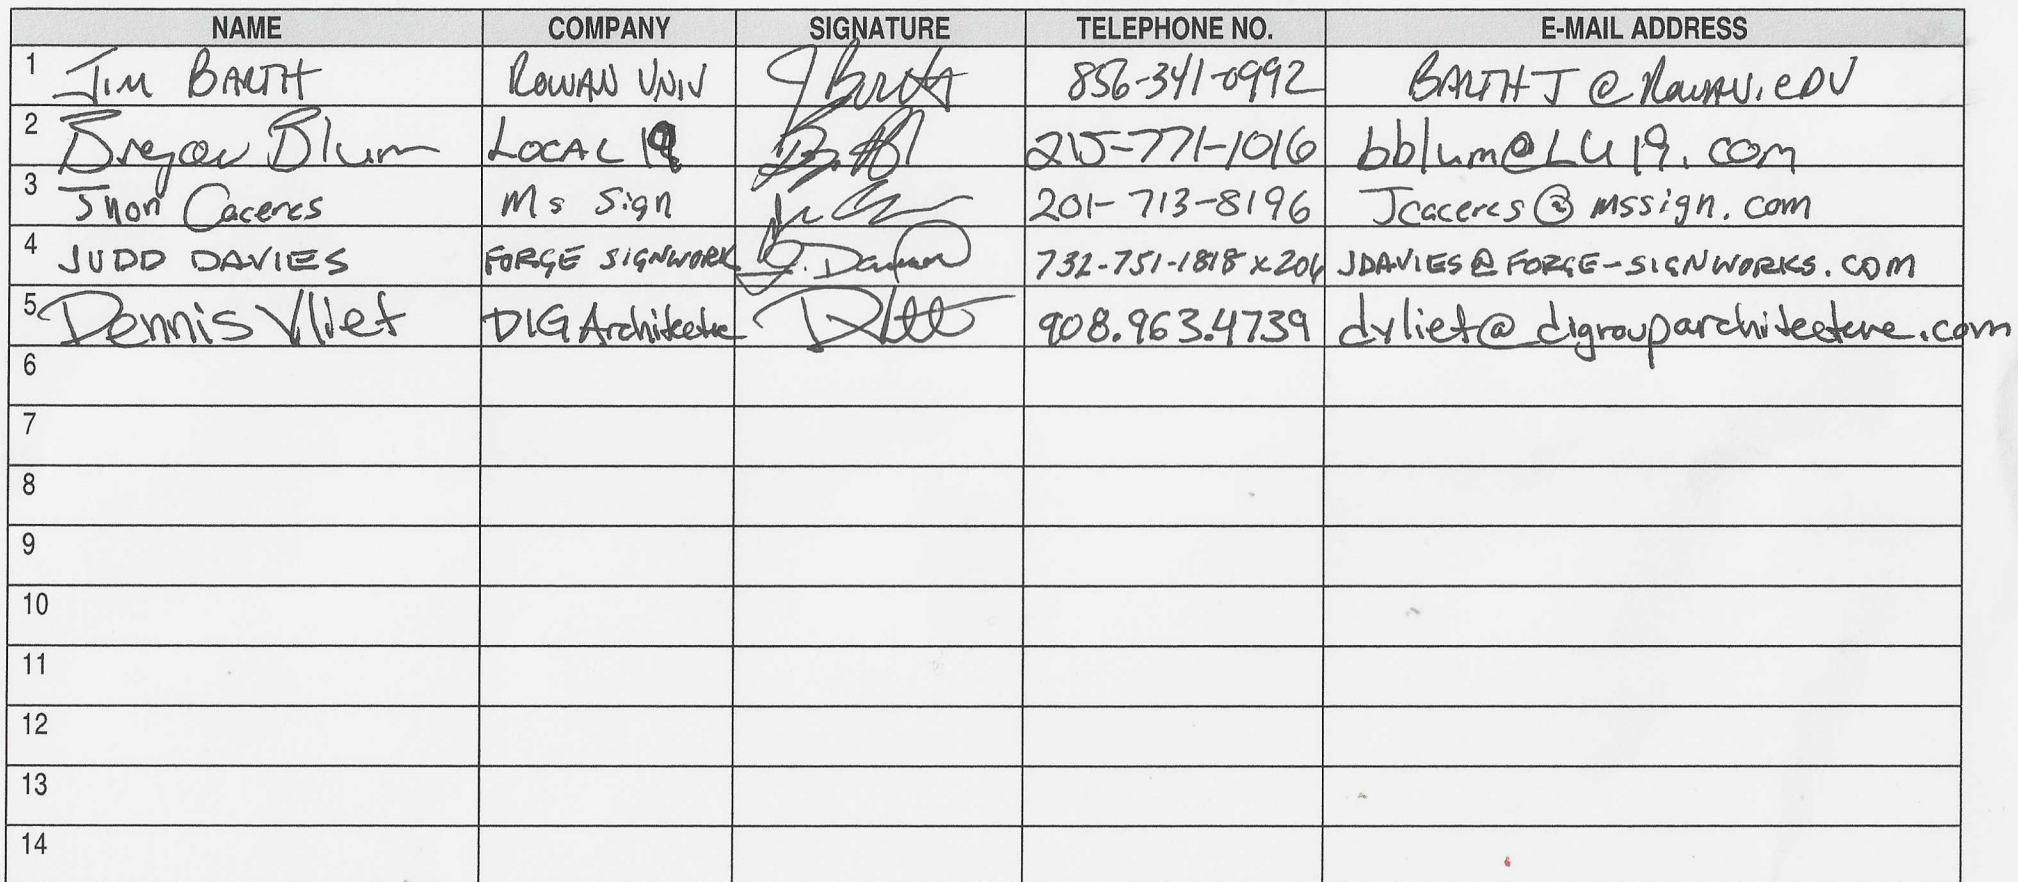 NAME COMPANY SIGNATURE TELEPHONE NO. E-MAIL ADDRESS
1 Jim BARTH ROWAN UNIV 856-341-0992 BARTHJ@ROWAN.EDU
2 Bregan Blum LOCAL 19 215-771-1016 bblum@LU19.com
3 Jhon Caceres Ms Sign 201-713-8196 Jcaceres@mssign.com
4 JUDD DAVIES FORGE SIGNWORK J. 732-751-1818 x206 JDAVIES@FORGE-SIGNWORKS.COM
5 Dennis Vliet DIG Architecture 908.963.4739 dvliet@digrouparchitecture.com
6
7
8
9
10
11
12
13
14